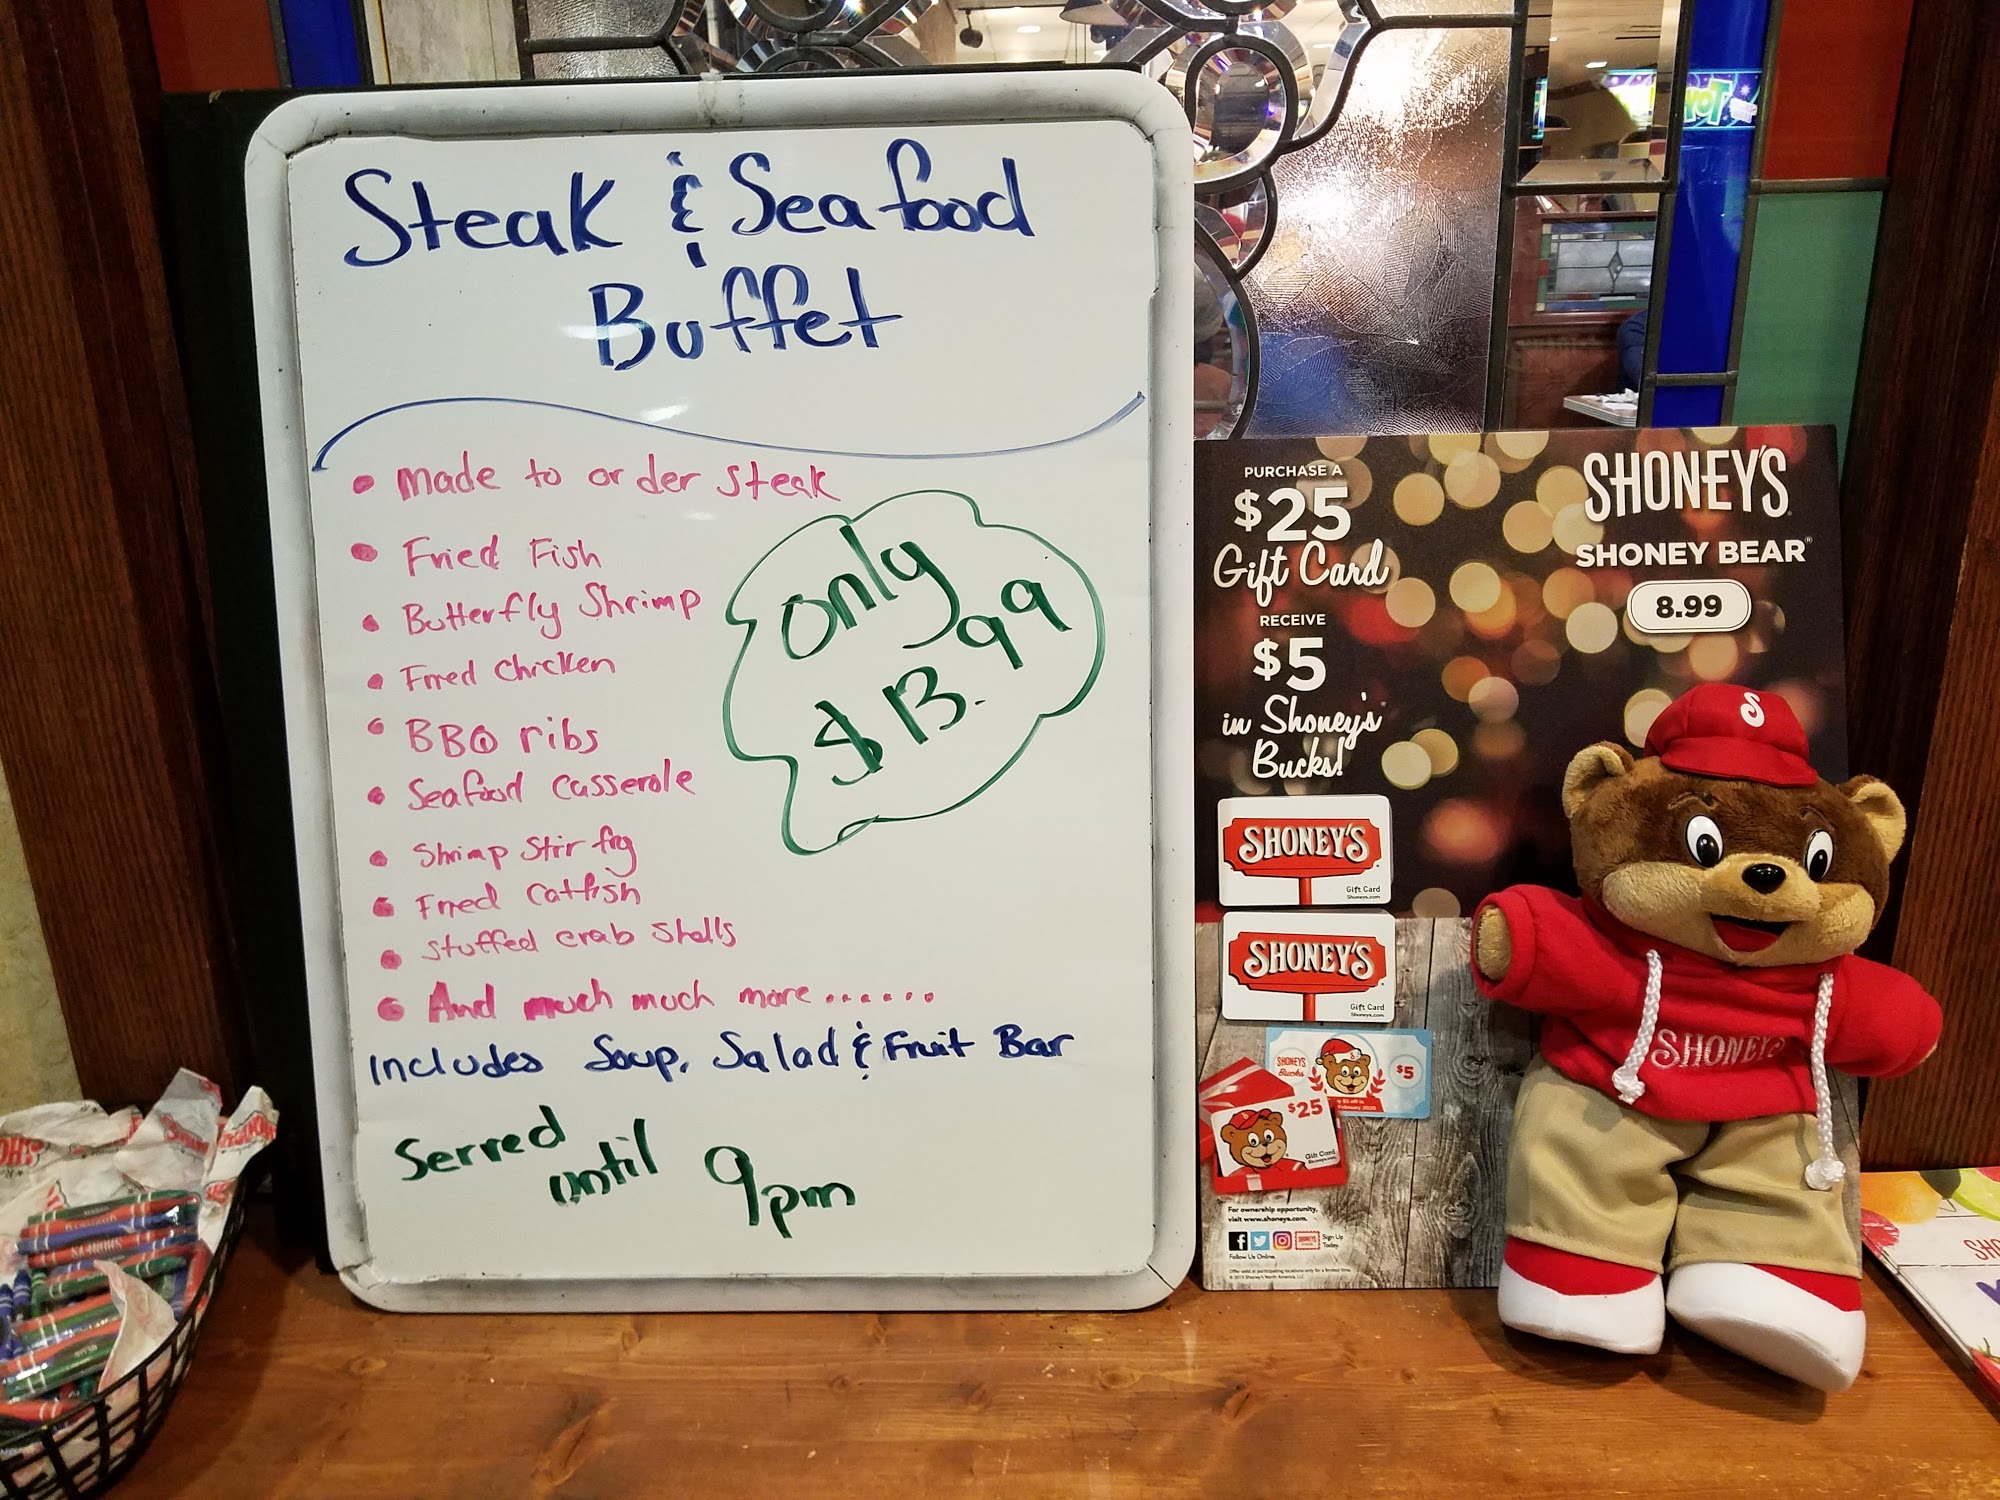 Steak & Seafood
Buffet
• made to order steak
• Fried Fish
• Butterfly Shrimp
• Fried chicken
• BBQ ribs
• Seafood casserole
• Shrimp stir fry
• Fried catfish
• stuffed crab shells
• And much much more.......
only
$13.99
Includes Soup, Salad & Fruit Bar
Served
until
9pm
PURCHASE A
$25
Gift Card
RECEIVE
$5
in Shoney's
Bucks!
SHONEY'S
SHONEY BEAR®
8.99
SHONEY'S
Gift Card
Shoneys.com
SHONEY'S
Gift Card
Shoneys.com
SHONEYS
Bucks
$5
February 2020
$25
Gift Card
Shoneys.com
For ownership opportunity,
visit www.shoneys.com.
Sign Up
Today.
Follow Us Online.
Offer valid at participating locations only for a limited time.
S
SHONEY'S